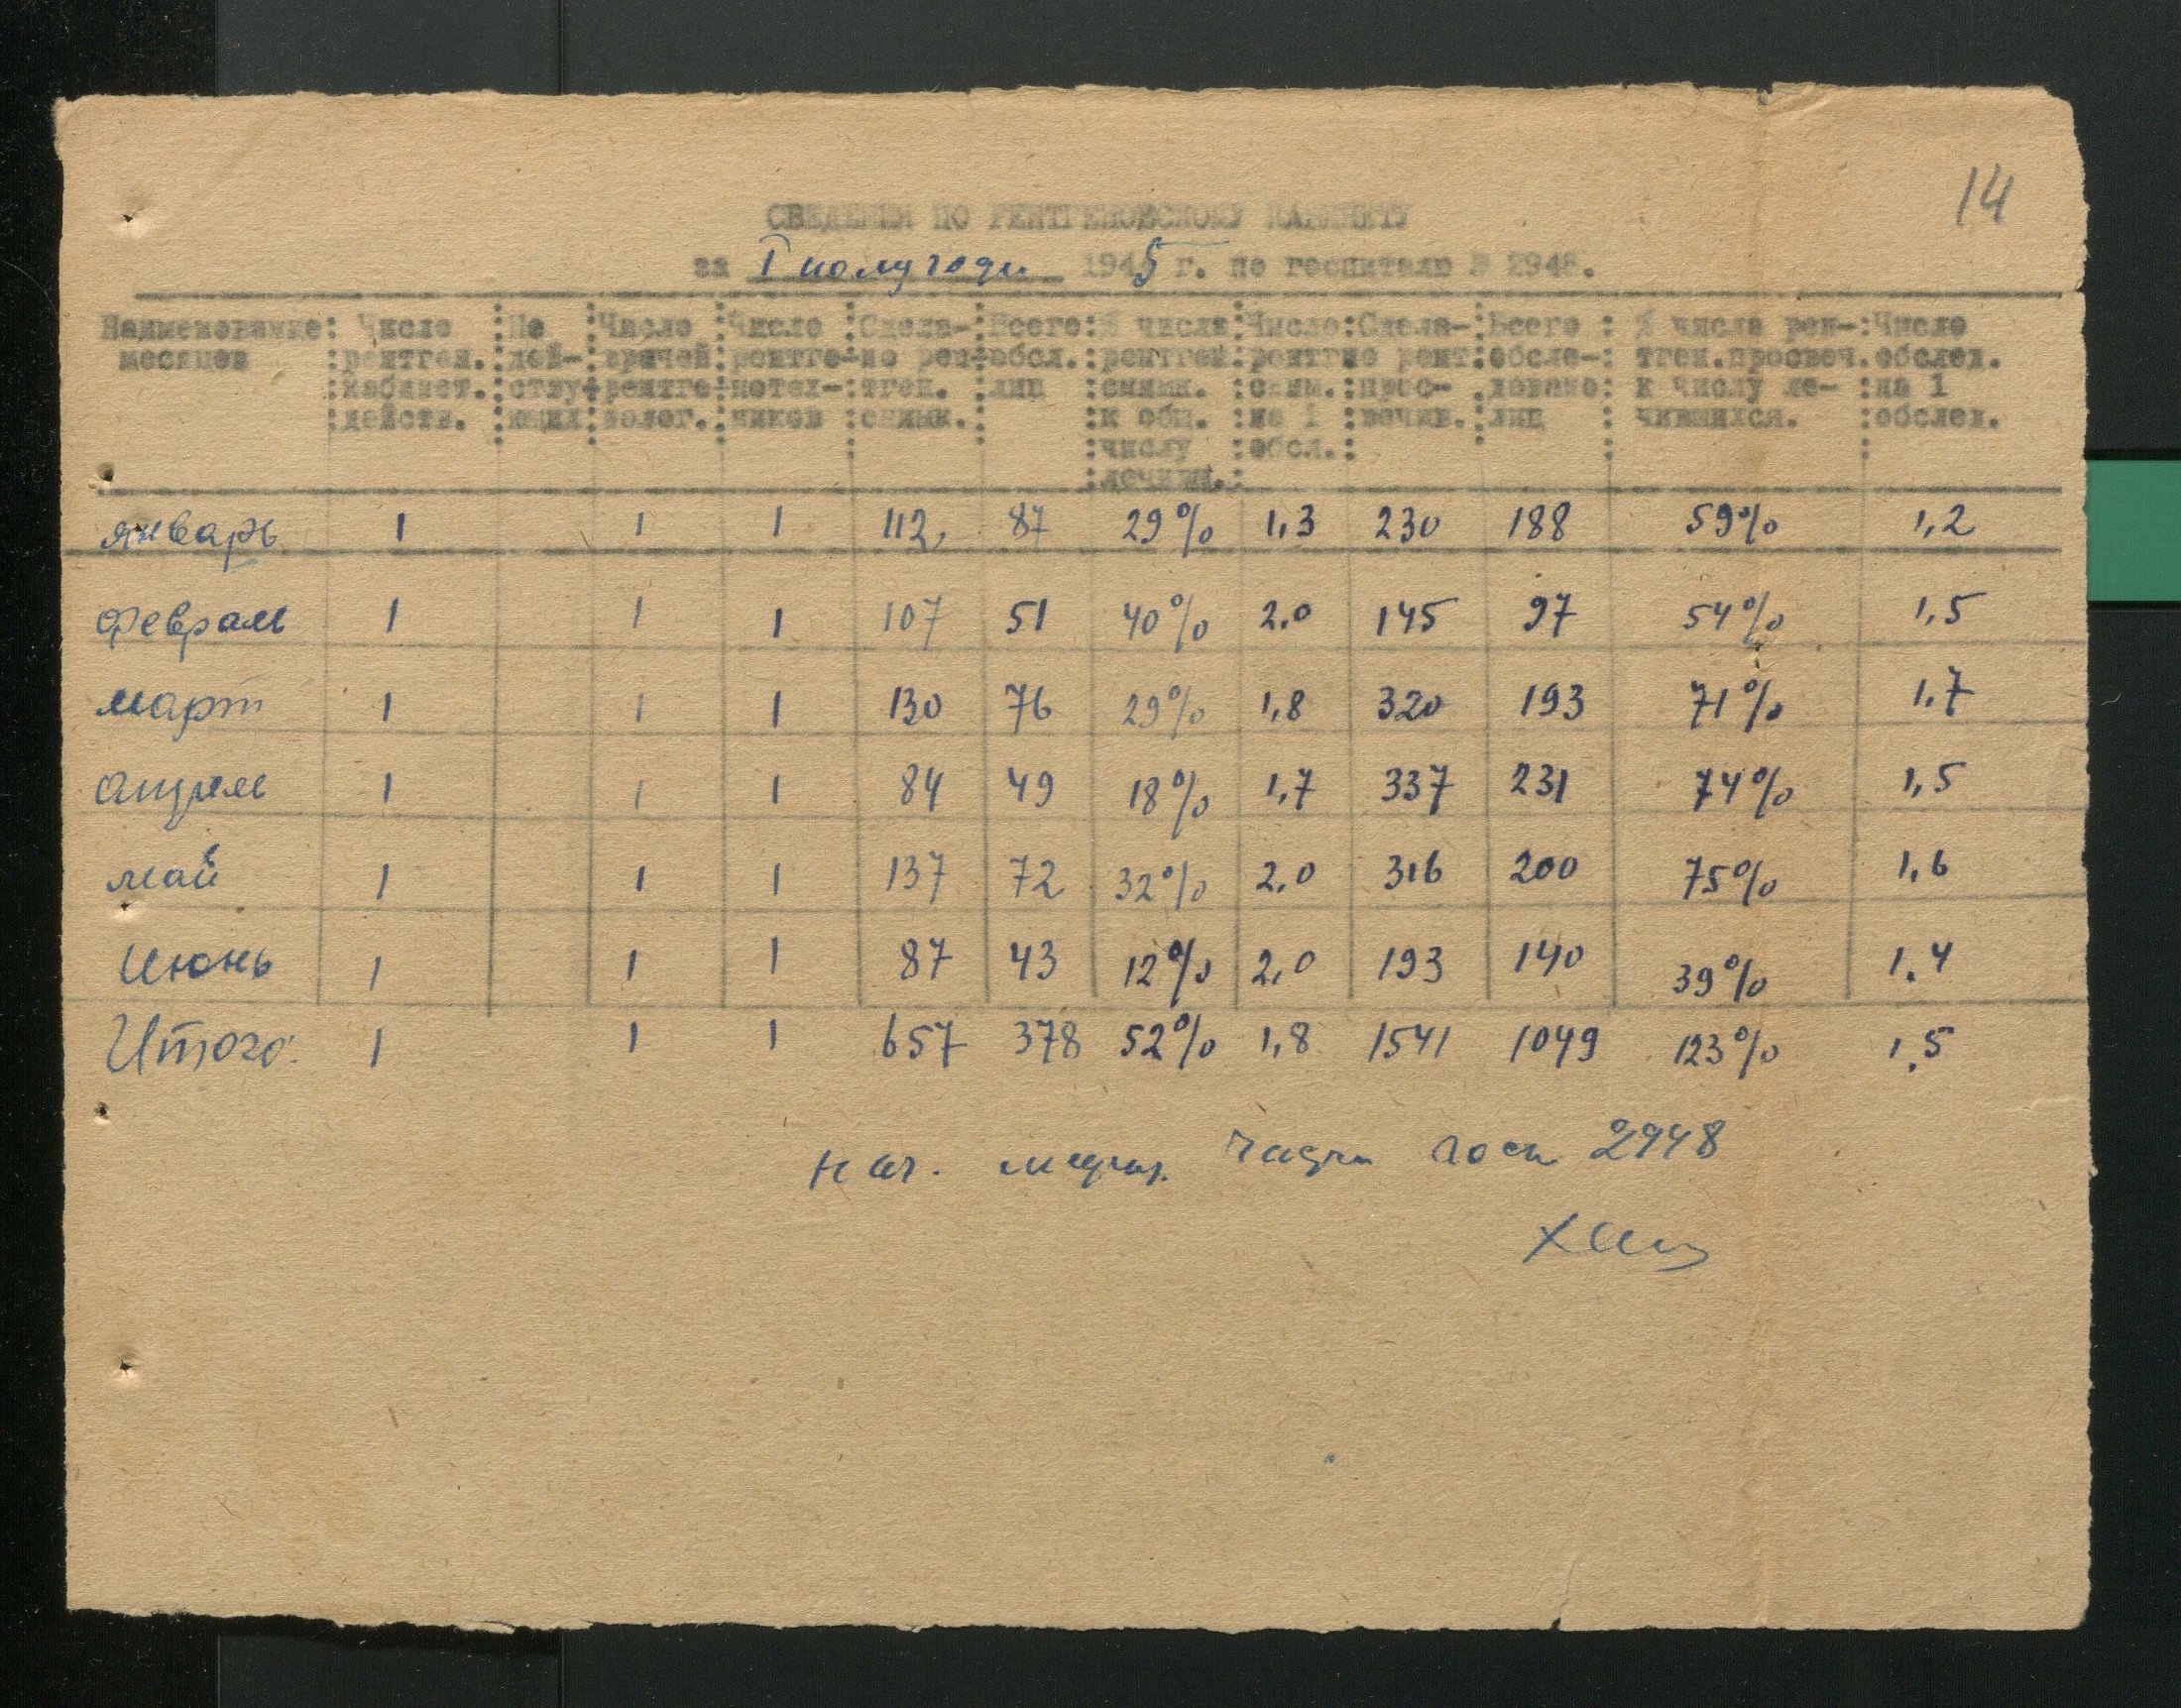 14
СВЕДЕНИЯ ПО РЕНТГЕНОВСКОМУ КАБИНЕТУ
за I полугоди 1945 г. по госпиталю № 2948.
Наименование: Число :Не :Число :Число :Сдела-:Всего:% числа:Число:Сдела-:Всего : % числа рен-:Число
месяцев :рентген. :дей- :врачей :рентге-:но рен-:обсл. :рентген:рентг:но рент:обсле-: тген.просвеч.:обслед.
:кабинет. :ству-:рентге:нотех-:тген. :лиц :снимк. :сним.:прос- :довано: к числу ле- :на 1
:действ. :ющих:нолог.:ников :снимк. : :к общ. :на 1 :вечив. :лиц : чившихся. :обслед.
:числу :обсл.:
:лечивш.:
январь 1 1 1 112, 87 29% 1,3 230 188 59% 1,2
февраль 1 1 1 107 51 40% 2,0 145 97 54% 1,5
март 1 1 1 130 76 29% 1,8 320 193 71% 1,7
апрель 1 1 1 84 49 18% 1,7 337 231 74% 1,5
май 1 1 1 137 72 32% 2,0 316 200 75% 1,6
Июнь 1 1 1 87 43 12% 2,0 193 140 39% 1,4
Итого: 1 1 1 657 378 52% 1,8 1541 1049 123% 1,5
нач. медиц. части госп 2948